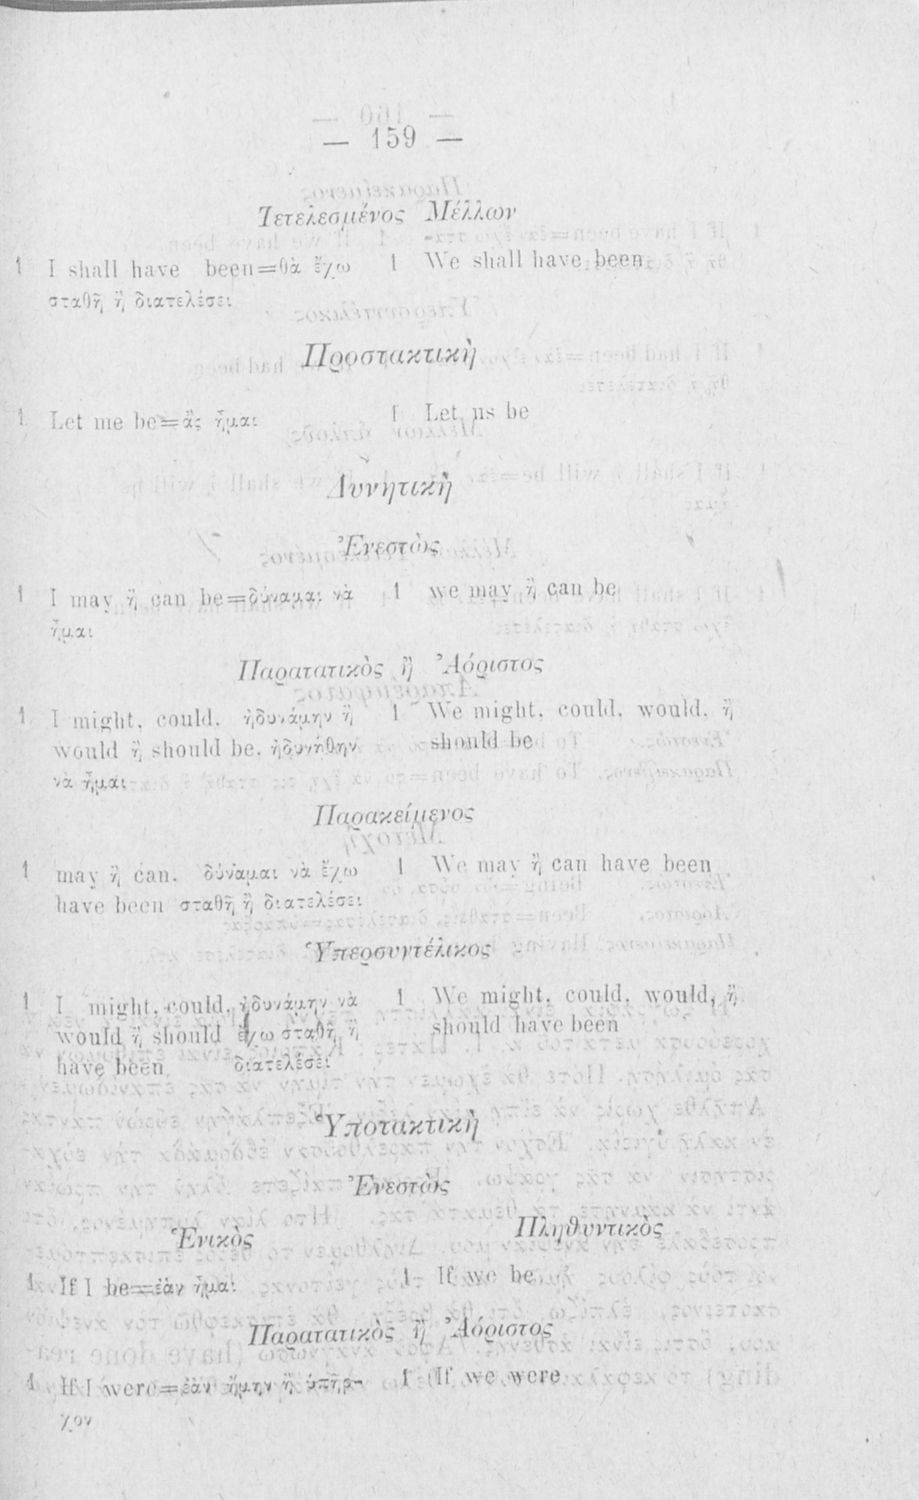 — 159 —
Τετελεσμένος Μέλλων
1 I shall have been=θὰ ἔχω 1 We shall have been
σταθῆ ἢ διατελέσει
Προστακτικὴ
1 Let me be=ἂς ἦμαι 1 Let us be
Δυνητικὴ
Ἐνεστὼς
1 I may ἢ can be=δύναμαι νὰ 1 we may ἢ can be
ἦμαι
Παρατατικὸς ἢ Ἀόριστος
1 I might, could, ἠδυνάμην ἢ 1 We might, could, would, ἢ
would ἢ should be, ἠδυνήθην should be
νὰ ἦμαι
Παρακείμενος
1 may ἢ can, δύναμαι νὰ ἔχω 1 We may ἢ can have been
have been σταθῆ ἢ διατελέσει
Ὑπερσυντέλικος
1 I might, could, ἠδυνάμην νὰ 1 We might, could, would, ἢ
would ἢ should ἔχω σταθῆ ἢ should have been
have been διατελέσει
Ὑποτακτικὴ
Ἐνεστὼς
Ἑνικὸς Πληθυντικὸς
1 If I be=ἐὰν ἦμαι 1 If we be
Παρατατικὸς ἢ Ἀόριστος
1 If I were=ἐὰν ἤμην ἢ ὑπῆρ- 1 If we were
χον